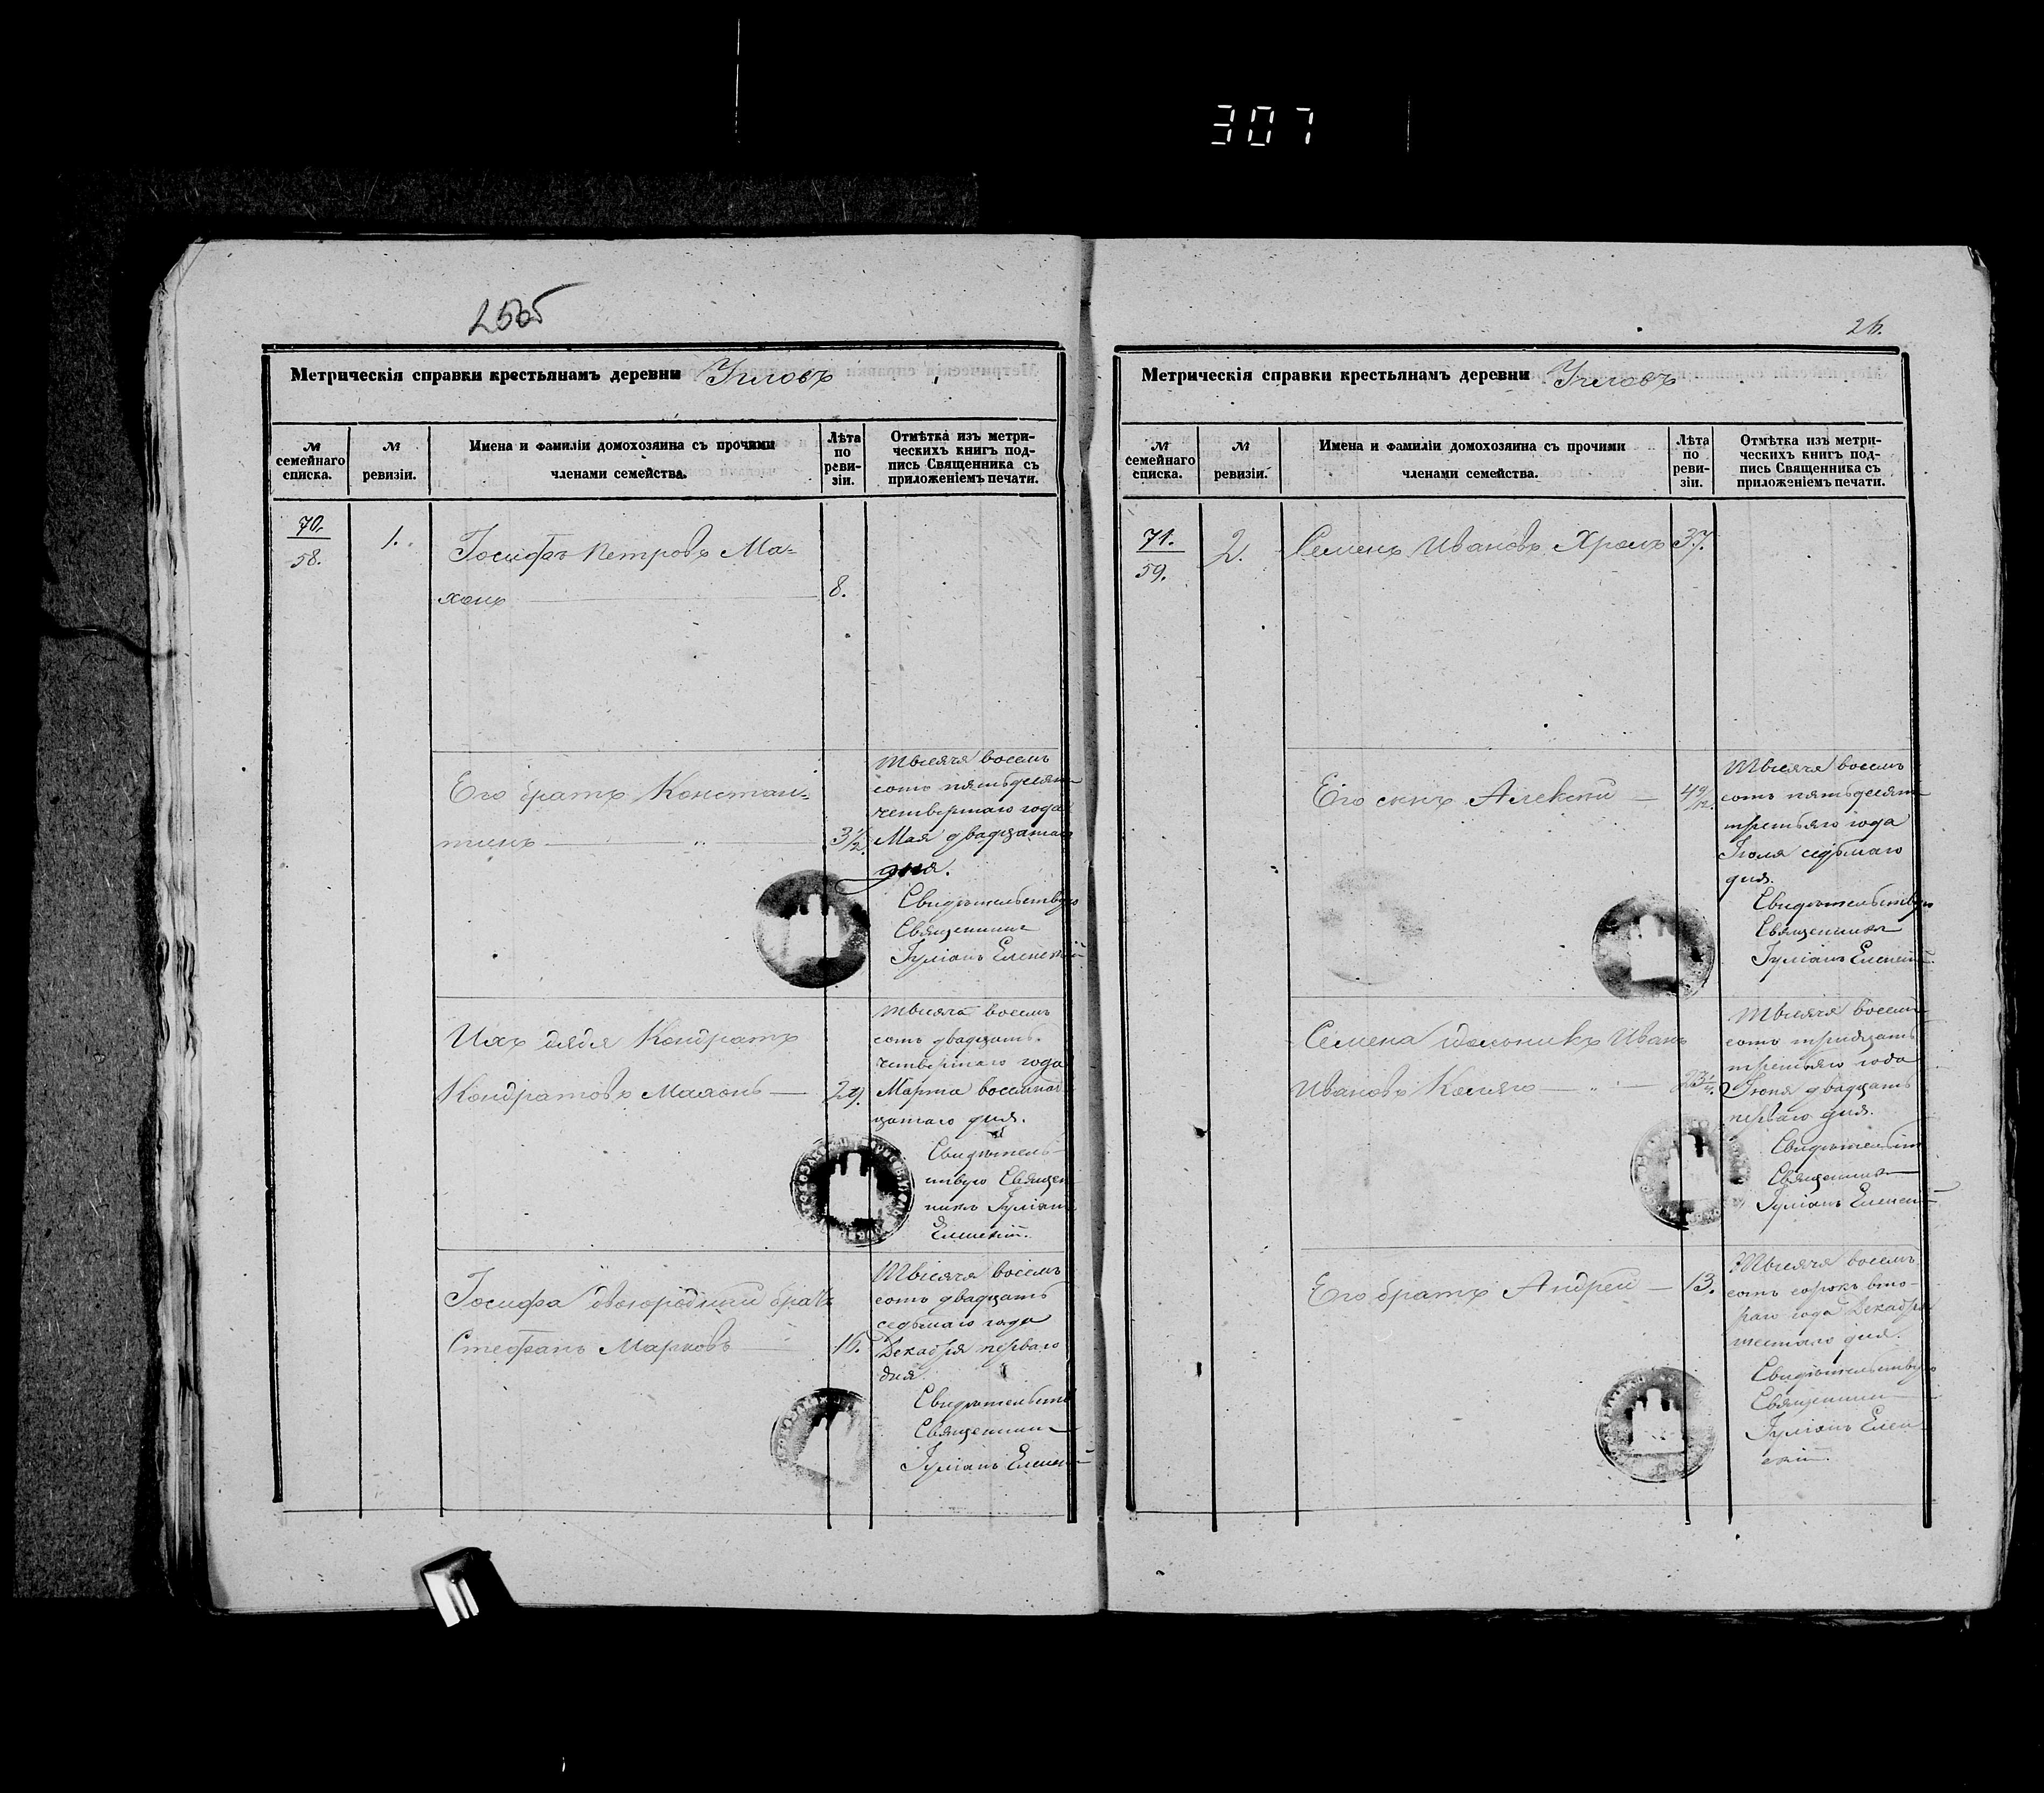 307
Метрическія справки крестьянамъ деревни Угловъ
№ семейнаго списка.
№ ревизіи.
Имена и фамиліи домохозяина съ прочими членами семейства.
Лѣта по реви-зіи.
Отмѣтка изъ метри-
ческихъ книгъ под-
пись Священника съ
приложеніемъ печати.
70.
58.
1.
Іосифъ Петровъ Ма=
хонь
8.
Его братъ Констан=
тинъ
3 1/2.
Тысяча восемь
сотъ пятьдесятъ
четвертаго года
Мая двадцатаго
дня.
Свидѣтельствую
Священникъ
Іуліанъ Еленскій
Ихъ дядя Кондратъ
Кондратовъ Махонь
29.
Тысяча восемь
сотъ двадцать
четвертаго года
Марта восемнад
цатаго дня.
Свидѣтель
ствую Священ
никъ Іуліанъ
Еленскій.
Іосифа двоюродный братъ
Стефанъ Марковъ
Тысяча восемь
сотъ двадцать
седьмаго года
Декабря перваго
дня.
Свидѣтельств
Священникъ
Іуліанъ Еленскій
26.
Метрическія справки крестьянамъ деревни Угловъ
№ семейнаго списка.
№ ревизіи.
Имена и фамиліи домохозяина съ прочими членами семейства.
Лѣта по реви-зіи.
Отмѣтка изъ метри-
ческихъ книгъ под-
пись Священника съ
приложеніемъ печати.
71.
59.
2.
Семенъ Ивановъ Хромъ
37.
Его сынъ Алексѣй
4 9/12.
Тысяча восемь
сотъ пятьдесят
третьяго года
Іюля седьмаго
дня.
Свидѣтельствую
Священникъ
Іуліанъ Еленскій.
Семена дольникъ Иванъ
Ивановъ
23 1/2.
Тысяча восемь
сотъ тридцать
третьяго года
Іюня двадцать
перваго дня.
Свидѣтельств
Священникъ
Іуліанъ Еленскій
Его братъ Андрей
13.
Тысяча восемь
сотъ сорокъ вто-
раго года Декабря
шестаго дня.
Свидѣтельствую
Священникъ
Іуліанъ Елен
скій.